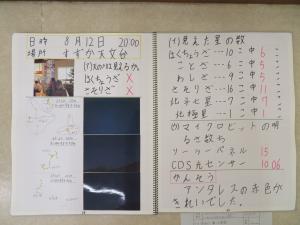 日時 8月12日 20:00
場所 すずか天文台
(ア)天の川は見るか
はくちょうざ X
さそりざ X
(イ)見えた星の数
はくちょうざ…10こ中6
ことざ…6こ中5
わしざ…9こ中5
さそりざ…16こ中11
北斗七星…7こ中7
北極星…1こ中1
(ウ)マイクロビットの明
るさ数ち
ソーラーパネル 15
CDS光センサー 10.06
かんそう
アンタレスの赤色が
きれいでした。